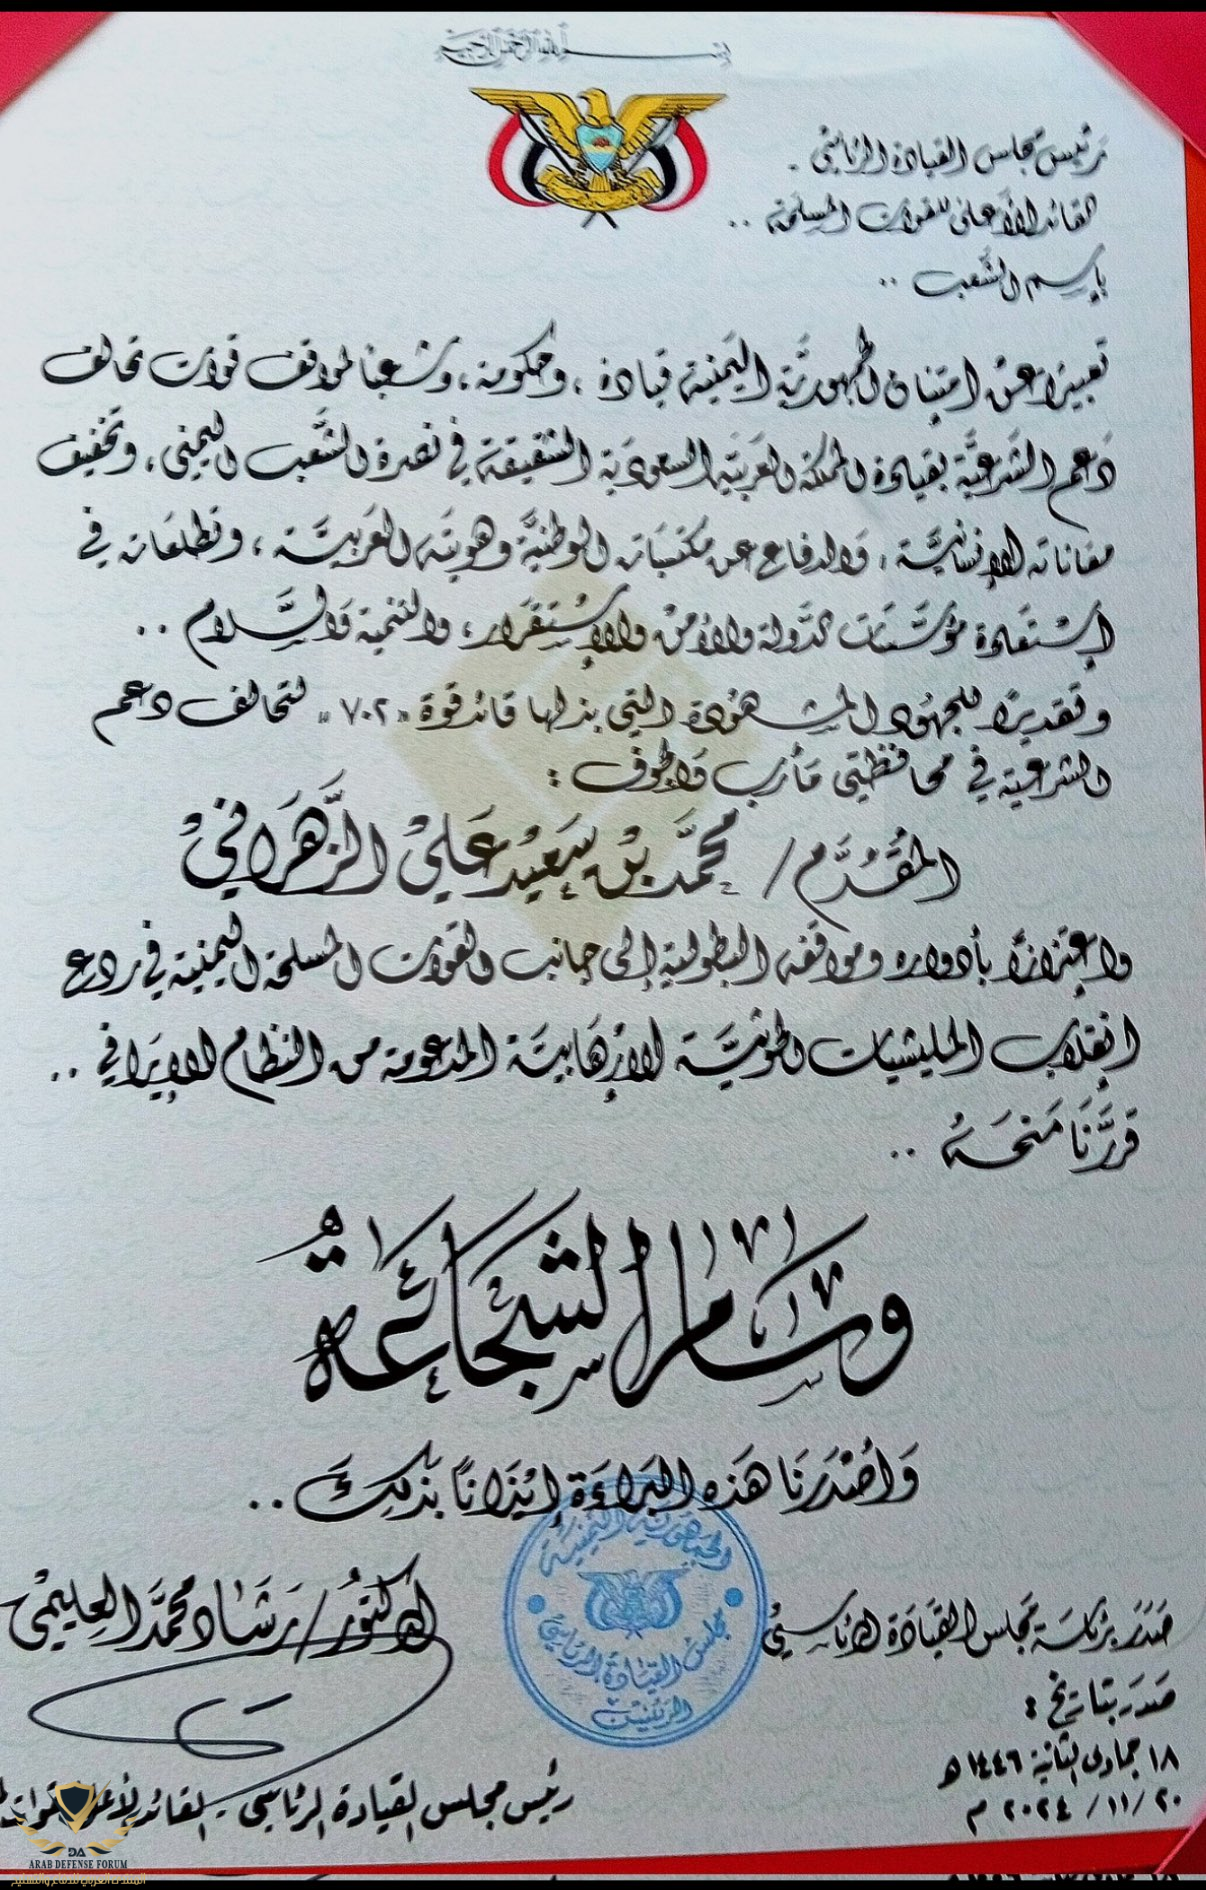 بسم الله الرحمن الرحيم
رئيس مجلس القيادة الرئاسي .
القائد الأعلى للقوات المسلحة ..
بإسم الشعب ..
تعبيرًا عن امتنان الجمهورية اليمنية قيادة ، وحكومة ، وشعبا لمواقف قوات تحالف
دعم الشرعية بقيادة المملكة العربية السعودية الشقيقة في نصرة الشعب اليمني ، وتخفيف
معاناته الإنسانية ، والدفاع عن مكتسباته الوطنية وهويته العربية ، وتطلعاته في
إستعادة مؤسسات الدولة والأمن والإستقرار ، والتنمية والسلام ..
وتقديرًا للجهود المشهودة التي بذلها قائد قوة "٧٠٢" لتحالف دعم
الشرعية في محافظتي مأرب والجوف :
المقدم / محمد بن سعيد علي الزهراني
واعتزازًا بأدواره ومواقفه البطولية إلى جانب القوات المسلحة اليمنية في ردع
انقلاب المليشيات الحوثية الإرهابية المدعومة من النظام الإيراني ..
قررنا منحه ..
وسام الشجاعة
وأصدرنا هذه البراءة إيذانًا بذلك ..
الجمهورية اليمنية
مجلس القيادة الرئاسي
الرئيس
صدر برئاسة مجلس القيادة الرئاسي
صدر بتاريخ :
١٨ جمادى الثانية ١٤٤٦ هـ
٢٠ / ١١ / ٢٠٢٤ م
الدكتور / رشاد محمد العليمي
رئيس مجلس القيادة الرئاسي - القائد الأعلى للقوات
DA
ARAB DEFENSE FORUM
المنتدى العربي للدفاع والتسليح